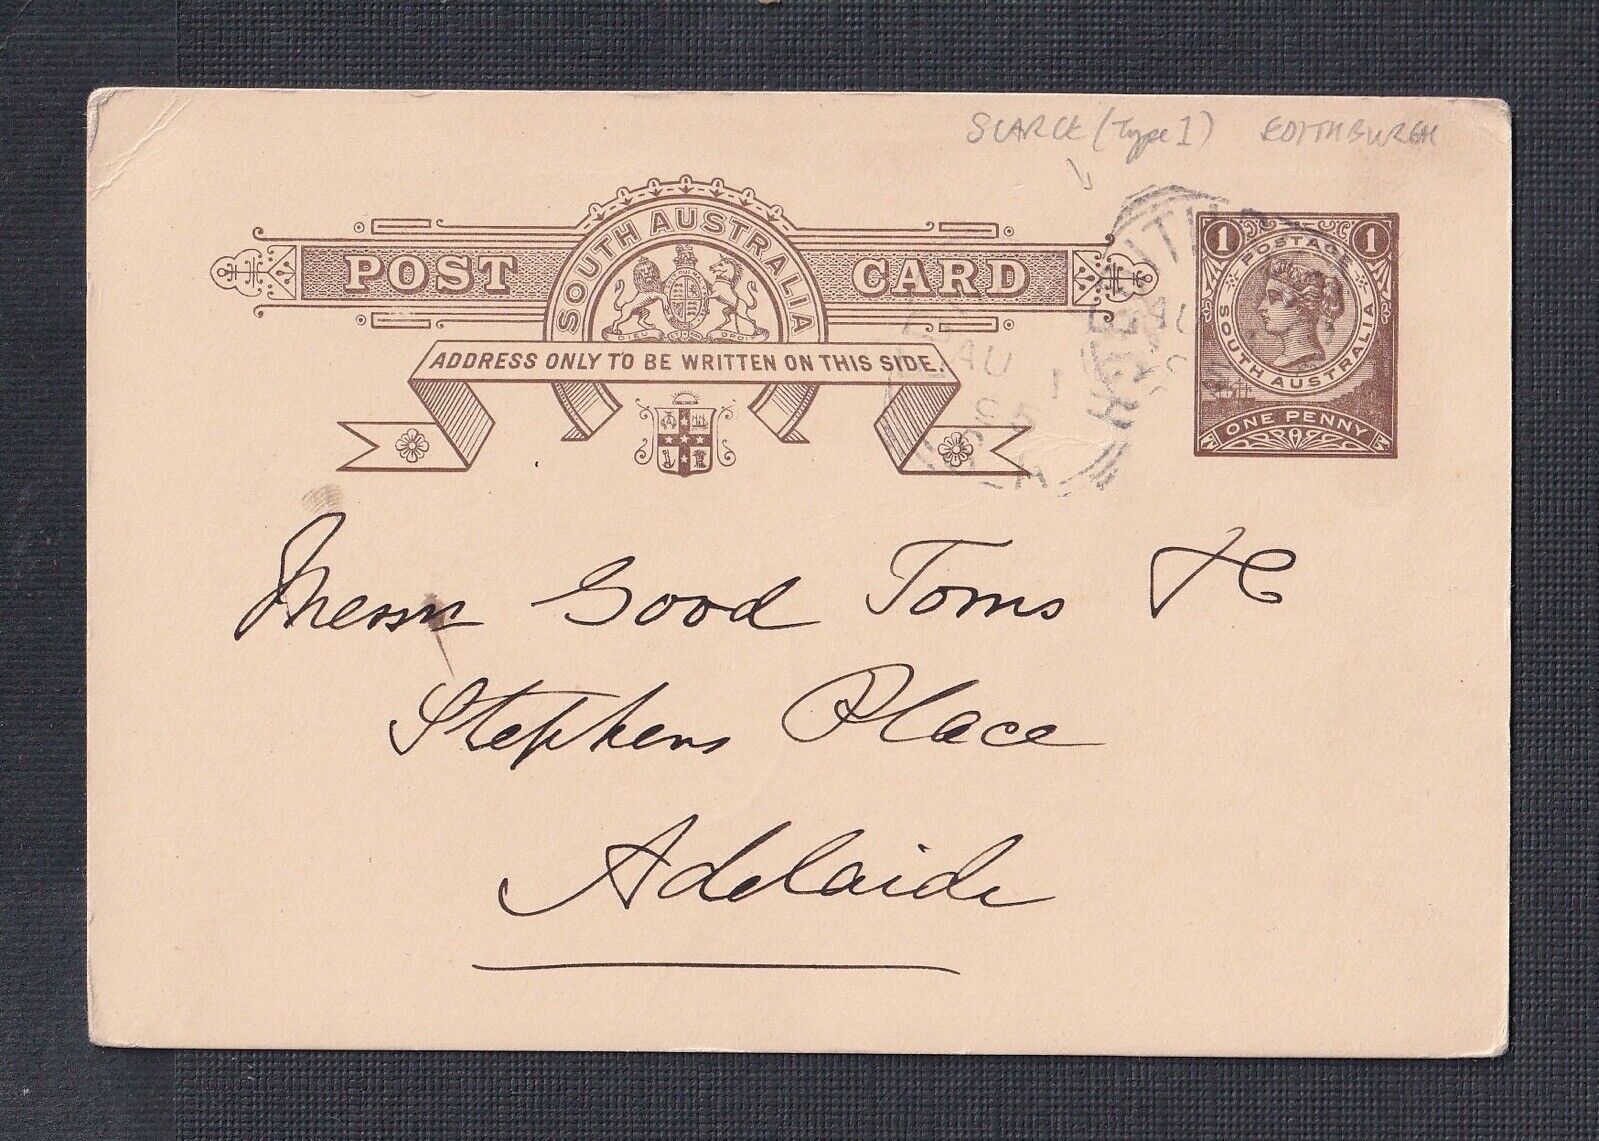 SCARCE (Type 1) EDITHBURGH
SOUTH AUSTRALIA
POST CARD
DIEU ET MON DROIT
ADDRESS ONLY TO BE WRITTEN ON THIS SIDE.
1 1
POSTAGE
SOUTH AUSTRALIA
ONE PENNY
AU 1
95
Messrs Good Toms & C
Stephens Place
Adelaide